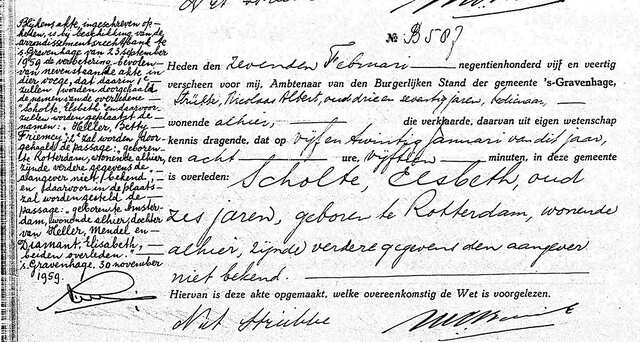 No B 507
Heden den zevenden Februari negentienhonderd vijf en veertig
verscheen voor mij, Ambtenaar van den Burgerlijken Stand der gemeente 's-Gravenhage,
Strübbe, Nicolaas Albert, oud drie en zeventig jaren, bedienaar,
wonende alhier, die verklaarde, daarvan uit eigen wetenschap
kennis dragende, dat op vijf en twintig Januari van dit jaar,
ten acht ure, vijftien minuten, in deze gemeente
is overleden: Scholte, Elsbeth, oud
zes jaren, geboren te Rotterdam, wonende
alhier, zijnde verdere gegevens den aangever
niet bekend.
Hiervan is deze akte opgemaakt, welke overeenkomstig de Wet is voorgelezen.
Strübbe
Blijkens akte, ingeschreven op
heden, is bij beschikking van de
arrondissementsrechtbank te
's Gravenhage van 23 september
1959 de verbetering bevolen
van nevenstaande akte in
dier voege, dat daarin 1e
zullen worden doorgehaald
de namen der overledene
"Scholte, Elsbeth" en daarvoor
zullen worden geplaatst de
namen: "Heller, Betty
2e zal worden door-
gehaald de passage: "geboren
te Rotterdam, wonende alhier,
zijnde verdere gegevens den
aangever niet bekend",
en daarvoor in de plaats
zal worden gesteld de
passage: "geboren te Amster-
dam, wonende alhier, dochter
van Heller, Mendel en
Diamant, Elisabeth,
beiden overleden."
's Gravenhage, 30 november
1959.